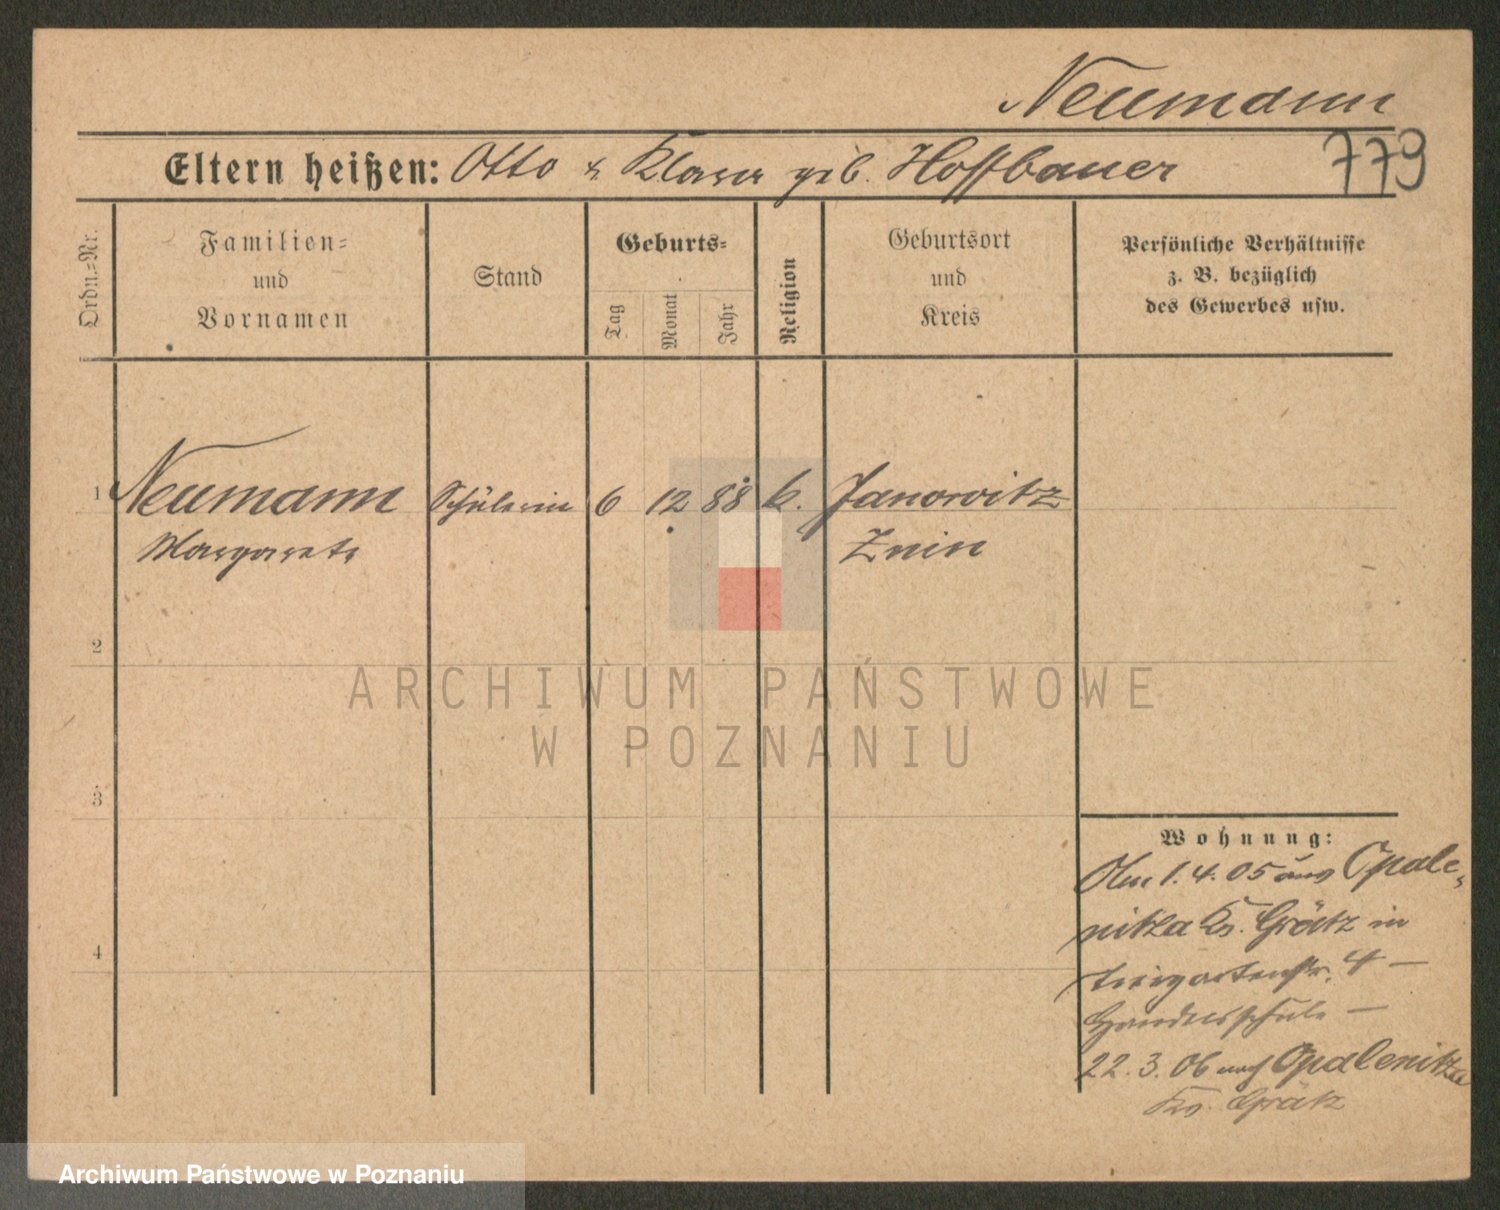 Neumann
Eltern heißen: Otto & Klara geb. Hoffbauer
779
Ordn.=Nr.
Familien=
und
Vornamen
Stand
Geburts=
Tag
Monat
Jahr
Religion
Geburtsort
und
Kreis
Persönliche Verhältnisse
z. B. bezüglich
des Gewerbes usw.
1 Neumann Schülerin 6 12 88 k. Janowitz
Margarete Znin
2
ARCHIWUM PAŃSTWOWE
W POZNANIU
3
Wohnung:
Am 1.4.05 aus Opale-
nitza Kr. Grätz in
Tiergartenstr. 4 —
4
Handelsschule —
22.3.06 nach Opalenitza
Kr. Grätz
Archiwum Państwowe w Poznaniu